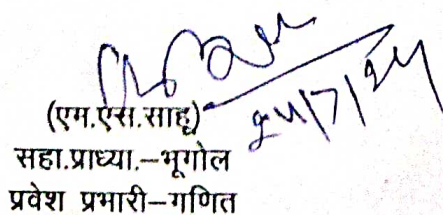 (एम.एस.साहू)
सहा.प्राध्या.–भूगोल
प्रवेश प्रभारी–गणित